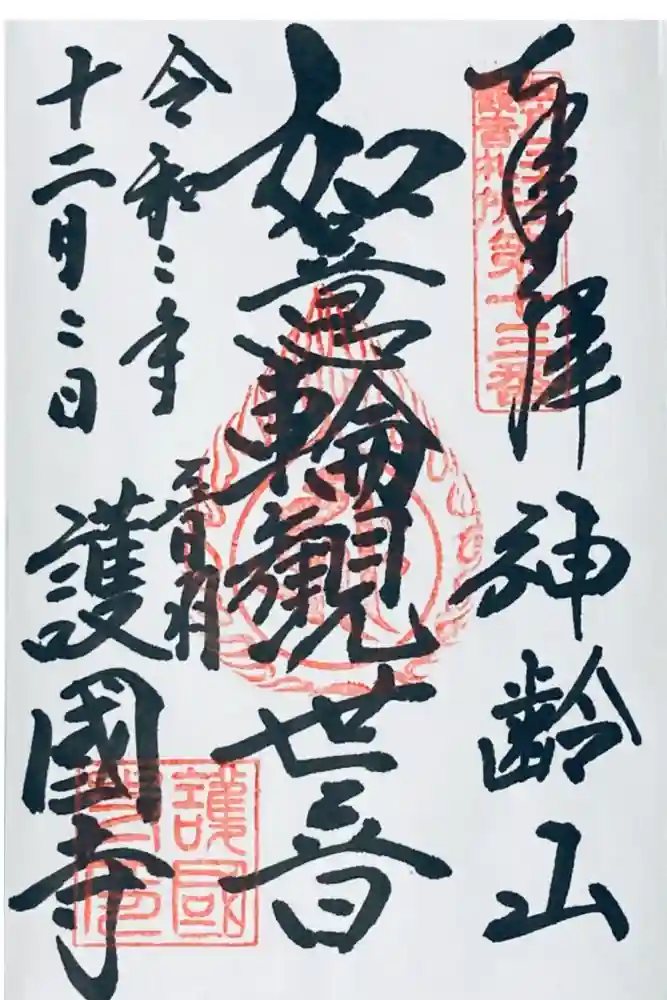 奉拝
神齢山
如意輪観世音
令和二年
十二月二日
音羽
護國寺
第十三番
護國